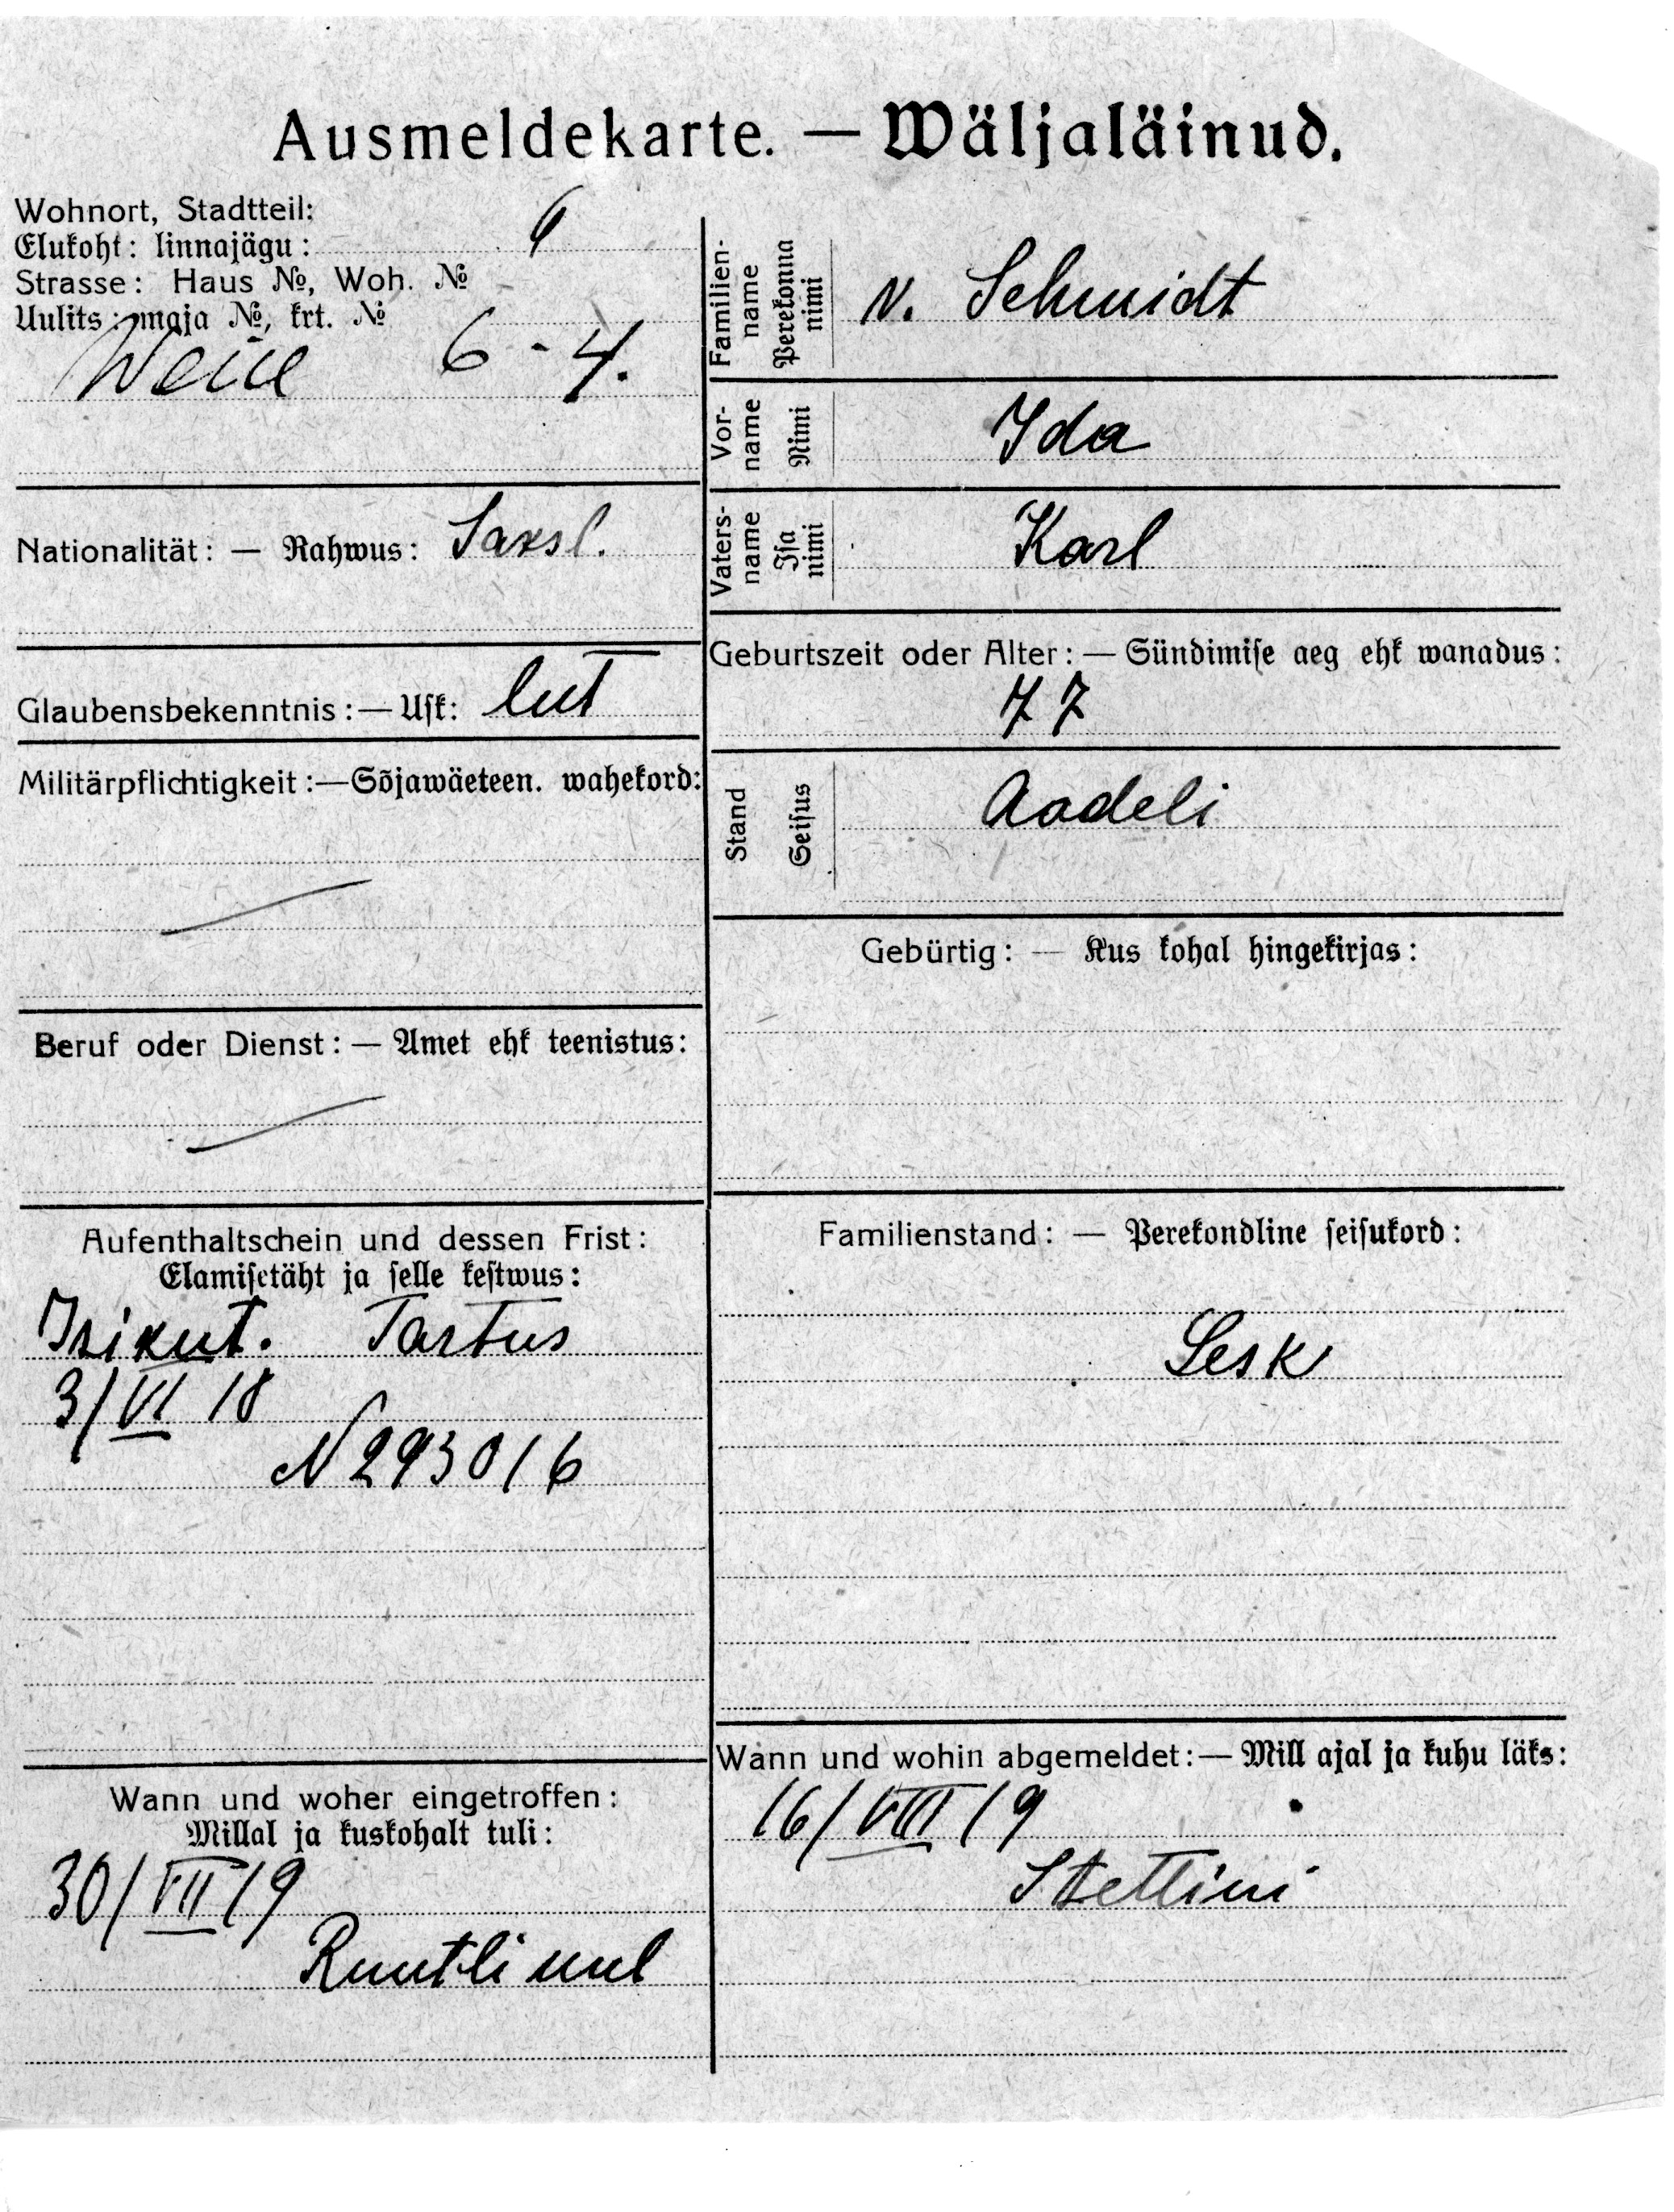 Ausmeldekarte. — Wäljaläinud.
Wohnort, Stadtteil:
Elukoht: linnajägu:
Strasse: Haus №, Woh. №
Uulits: maja №, krt. №
6 - 4.
Nationalität: — Rahwus: Saksl.
Glaubensbekenntnis: — Usk: lut
Militärpflichtigkeit: — Sõjawäeteen. wahekord:
Beruf oder Dienst: — Amet ehk teenistus:
Aufenthaltschein und dessen Frist:
Elamisetäht ja selle kestwus:
Isikut. Tartus
3/VI 18
N 293016
Wann und woher eingetroffen:
Millal ja kuskohalt tuli:
30/VII 19
Ruutli uul
Familien-
name
Perekonna
nimi
v. Schmidt
Vor-
name
Nimi
Ida
Vaters-
name
Isa
nimi
Karl
Geburtszeit oder Alter: — Sündimise aeg ehk wanadus:
77
Stand
Seisus
Aadeli
Gebürtig: — Kus kohal hingekirjas:
Familienstand: — Perekondline seisukord:
Lesk
Wann und wohin abgemeldet: — Mill ajal ja kuhu läks:
16/VIII 19
Stettini